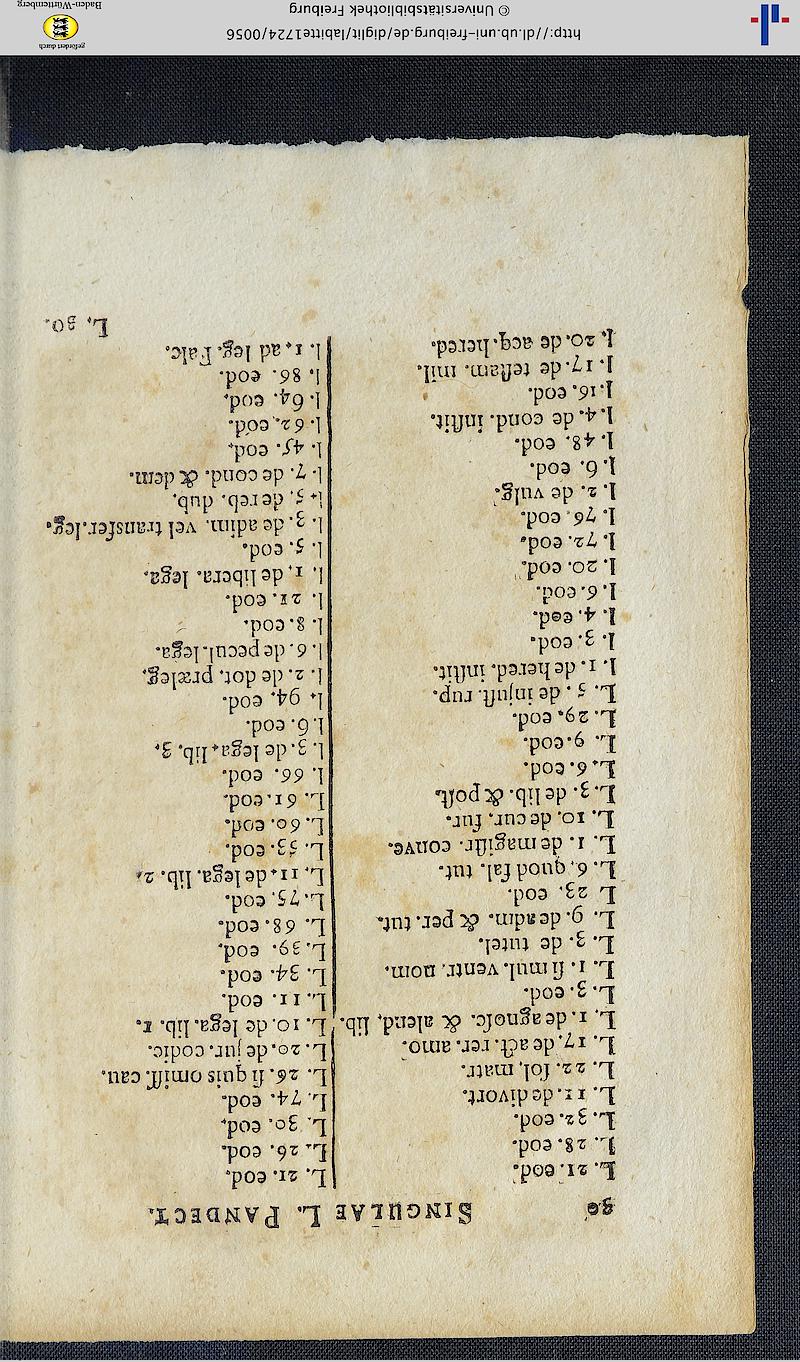 36 SINGULAE L. PANDECT.
L. 21. eod.
L. 28. eod.
L. 32. eod.
L. 11. de divort.
L. 22. sol, matr.
L. 17. de act. rer. amo.
L. 1. de agnosc. & alend, lib.
L. 3. eod.
L. 1. si mul. ventr. nom.
L. 3. de tutel.
L. 9. de adm. & per. tut.
L 23. eod.
L. 6. quod fal. tut.
L. 1. de magistr. conve.
L. 10. de cur. fur.
L. 3. de lib. & post.
L. 6. eod.
L. 9. eod.
L. 29. eod.
L. 5. de injust. rup.
l. 1. de hered. instit.
l. 3. eod.
l. 4. eod.
l. 6. eod.
l. 20. eod.
l. 72. eod.
l. 76. eod.
l. 2. de vulg.
l. 6. eod.
l. 48. eod.
l. 4. de cond. instit.
l. 16. eod.
l. 17. de testam. mil.
l. 20. de acq. hered.
L. 21. eod.
L. 26. eod.
L. 30. eod.
L. 74. eod.
L. 26. si quis omiss. cau.
L. 20. de jur. codic.
L. 10. de lega. lib. 1.
L. 11. eod.
L. 34. eod.
L. 39. eod.
L. 68. eod.
L. 75. eod.
L. 11. de lega. lib. 2.
L. 53. eod.
L. 60. eod.
L. 61. eod.
l. 66. eod.
l. 3. de lega. lib. 3.
l. 6. eod.
l. 94. eod.
l. 2. de dot. præleg.
l. 6. de pecul. lega.
l. 8. eod.
l. 21. eod.
l. 1. de libera. lega.
l. 5. eod.
l. 3. de adim. vel transfer. leg.
l. 5. de reb. dub.
l. 7. de cond. & dem.
l. 45. eod.
l. 62. eod.
l. 64. eod.
l. 86. eod.
l. 1. ad leg. Falc.
L. 30.
http://dl.ub.uni-freiburg.de/diglit/labitte1724/0056
© Universitätsbibliothek Freiburg
gefördert durch
Baden-Württemberg